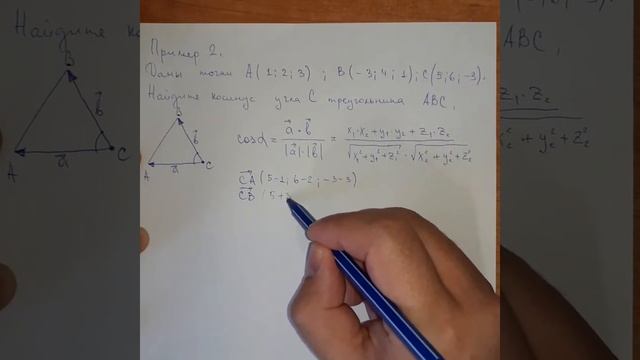 Пример 2.
Даны точки A(1;2;3) ; B(-3;4;1); C(5;6;-3).
Найдите косинус угла C треугольника ABC.
B
b
A
a
C
cosα = a·b / |a|·|b| = x₁·x₂+y₁·y₂+z₁·z₂ / √x₁²+y₁²+z₁² · √x₂²+y₂²+z₂²
CA (5-1; 6-2; -3-3)
CB (5+
Найдите
B
b
A
a
C
ABC,